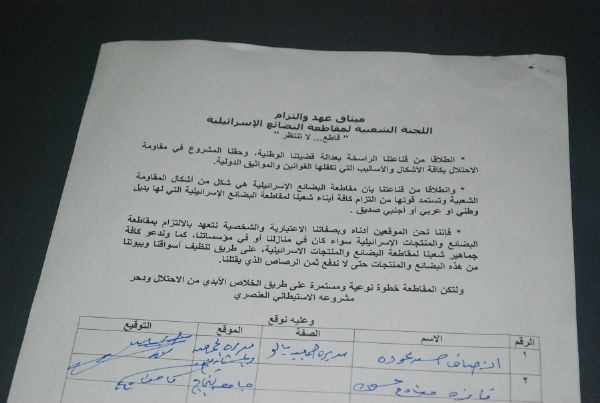 ميثاق عهد والتزام
اللجنة الشعبية لمقاطعة البضائع الإسرائيلية
" قاطع... لا تنتظر "
* انطلاقا من قناعتنا الراسخة بعدالة قضيتنا الوطنية، وحقنا المشروع في مقاومة
الاحتلال بكافة الأشكال والأساليب التي تكفلها القوانين والمواثيق الدولية.
* وانطلاقا من قناعتنا بان مقاطعة البضائع الإسرائيلية هي شكل من أشكال المقاومة
الشعبية وتستمد قوتها من التزام كافة أبناء شعبنا لمقاطعة البضائع الإسرائيلية التي لها بديل
وطني او عربي أو أجنبي صديق .
* فإننا نحن الموقعين أدناه وبصفاتنا الاعتبارية والشخصية نتعهد بالالتزام بمقاطعة
البضائع والمنتجات الإسرائيلية سواء كان في منازلنا أو في مؤسساتنا، كما وندعو كافة
جماهير شعبنا لمقاطعة البضائع والمنتجات الاسرائيلية، على طريق تنظيف أسواقنا وبيوتنا
من هذه البضائع والمنتجات حتى لا ندفع ثمن الرصاص الذي يقتلنا.
ولتكن المقاطعة خطوة نوعية ومستمرة على طريق الخلاص الأبدي من الاحتلال ودحر
مشروعه الاستيطاني العنصري
وعليه نوقع
الرقم الاسم الصفة الموقع التوقيع
١ انصاف عوده مديره
٢ فايزه جامعة النجاح